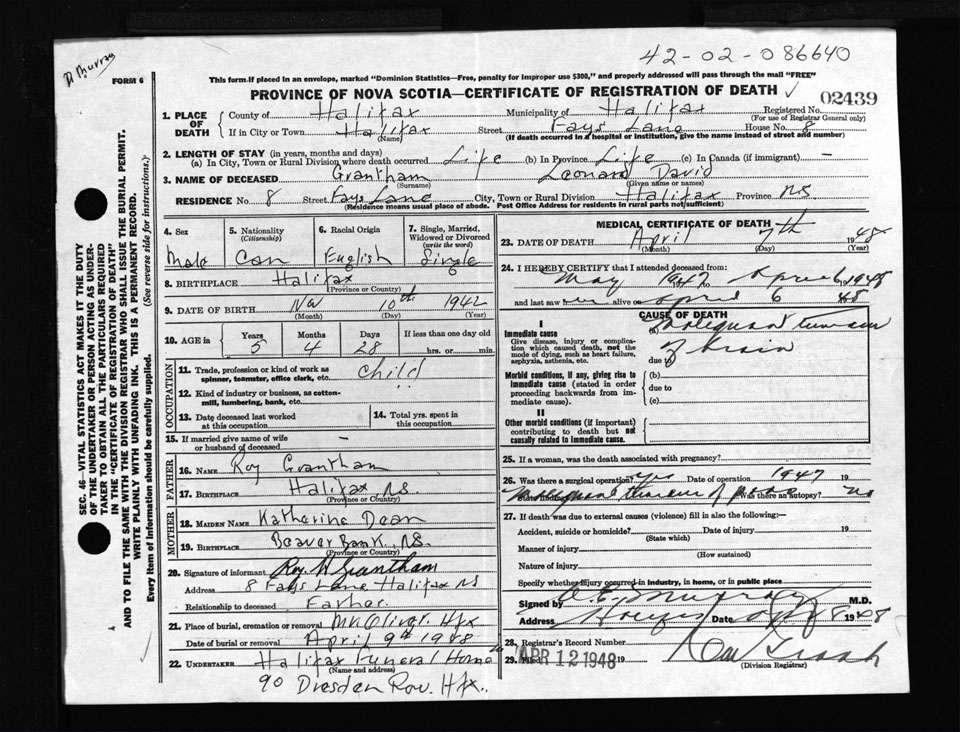 D Murray
42-02-086640
FORM 6
This form if placed in an envelope, marked "Dominion Statistics—Free, penalty for improper use $300," and properly addressed will pass through the mail "FREE"
PROVINCE OF NOVA SCOTIA—CERTIFICATE OF REGISTRATION OF DEATH ✓
02439
1. PLACE OF DEATH { County of Halifax Municipality of Halifax Registered No.
(For use of Registrar General only)
If in City or Town Halifax Street Fays Lane House No. 8
(Name) (If death occurred in a hospital or institution, give the name instead of street and number)
2. LENGTH OF STAY (in years, months and days)
(a) In City, Town or Rural Division where death occurred Life (b) In Province Life (c) In Canada (if immigrant) —
3. NAME OF DECEASED Grantham Leonard David
(Surname) (Given name or names)
RESIDENCE No. 8 Street Fays Lane City, Town or Rural Division Halifax Province N.S.
(Residence means usual place of abode. Post Office Address for residents in rural parts not sufficient)
4. Sex Male
5. Nationality (Citizenship) Can
6. Racial Origin English
7. Single, Married, Widowed or Divorced (write the word) Single
8. BIRTHPLACE Halifax
(Province or Country)
9. DATE OF BIRTH Nov 10th 1942
(Month) (Day) (Year)
10. AGE in Years 5 Months 4 Days 28 If less than one day old
hrs. or min.
OCCUPATION
11. Trade, profession or kind of work as spinner, teamster, office clerk, etc. Child
12. Kind of industry or business, as cotton-mill, lumbering, bank, etc. "
13. Date deceased last worked at this occupation
14. Total yrs. spent in this occupation
15. If married give name of wife or husband of deceased —
FATHER
16. NAME Roy Grantham
17. BIRTHPLACE Halifax N.S.
(Province or Country)
MOTHER
18. MAIDEN NAME Katherine Dean
19. BIRTHPLACE Beaver Bank N.S.
(Province or Country)
20. Signature of informant Roy W Grantham
Address 8 Fays Lane Halifax NS
Relationship to deceased Father
21. Place of burial, cremation or removal Mt. Olivet Hfx
Date of burial or removal April 9th 1948
22. UNDERTAKER Halifax Funeral Home
(Name and address)
90 Dresden Row. Hfx.
MEDICAL CERTIFICATE OF DEATH
23. DATE OF DEATH April 7th 1948
(Month) (Day) (Year)
24. I HEREBY CERTIFY that I attended deceased from:
May 1947 to April 6 1948
and last saw alive on April 6 1948
CAUSE OF DEATH
I
Immediate cause
Give disease, injury or complication which caused death, not the mode of dying, such as heart failure, asphyxia, asthenia, etc.
(a) Malignant tumour
of brain
due to
Morbid conditions, if any, giving rise to immediate cause (stated in order proceeding backwards from immediate cause).
(b)
due to
(c)
II
Other morbid conditions (if important) contributing to death but not causally related to immediate cause.
25. If a woman, was the death associated with pregnancy?
26. Was there a surgical operation? Yes Date of operation 1947 19
State findings Malignant tumour of Was there an autopsy? no
27. If death was due to external causes (violence) fill in also the following:—
Accident, suicide or homicide? Date of injury 19
(State which)
Manner of injury
(How sustained)
Nature of injury
Specify whether injury occurred in industry, in home, or in public place
Signed by Murray M.D.
Address Halifax Date Apr 8 1948
28. Registrar's Record Number
29. Filed APR 12 1948 19
(Division Registrar)
SEC. 46—VITAL STATISTICS ACT MAKES IT THE DUTY
OF THE UNDERTAKER OR PERSON ACTING AS UNDER-
TAKER TO OBTAIN ALL THE PARTICULARS REQUIRED
IN THE "CERTIFICATE OF REGISTRATION OF DEATH"
AND TO FILE THE SAME WITH THE DIVISION REGISTRAR WHO SHALL ISSUE THE BURIAL PERMIT.
WRITE PLAINLY WITH UNFADING INK. THIS IS A PERMANENT RECORD.
Every item of Information should be carefully supplied. (See reverse side for instructions.)